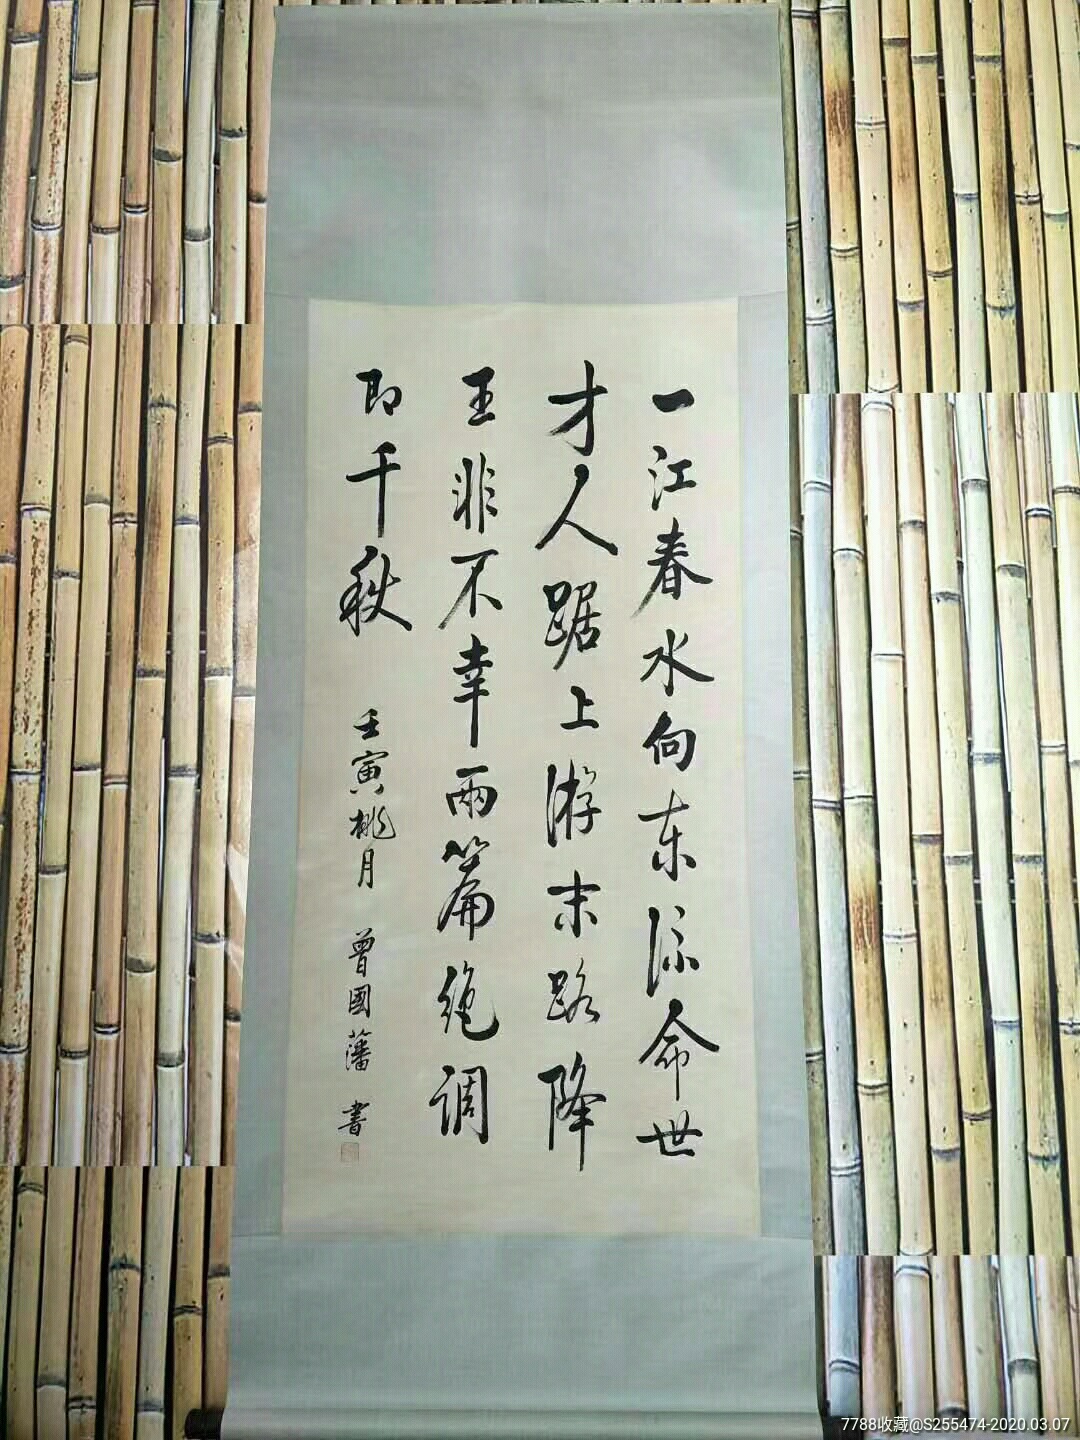 一江春水向东流命世
才人踞上游末路降
王非不幸兩篇绝调
即千秋 壬寅桃月 曾國藩 書
7788收藏@S255474-2020.03.07